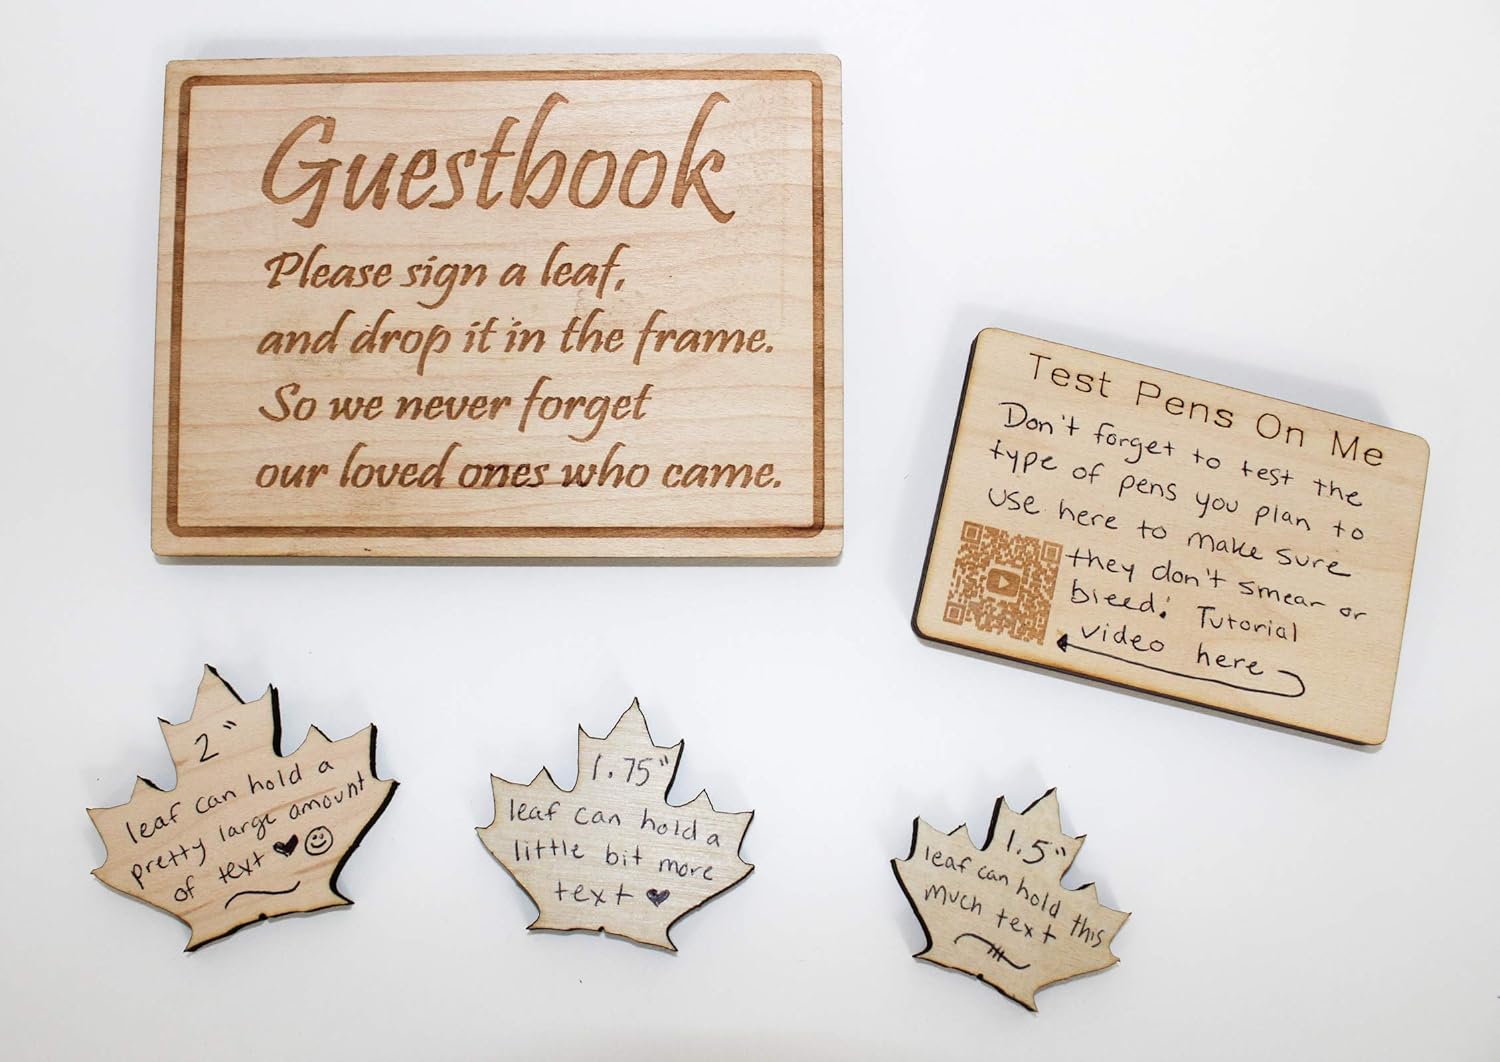 Guestbook
Please sign a leaf,
and drop it in the frame.
So we never forget
our loved ones who came.
Test Pens On Me
Don't forget to test the
type of pens you plan to
use here to make sure
they don't smear or
bleed! Tutorial
video here
2"
leaf can hold a
pretty large amount
of text ♥ ☺
1.75"
leaf can hold a
little bit more
text ♥
1.5"
leaf can hold this
much text